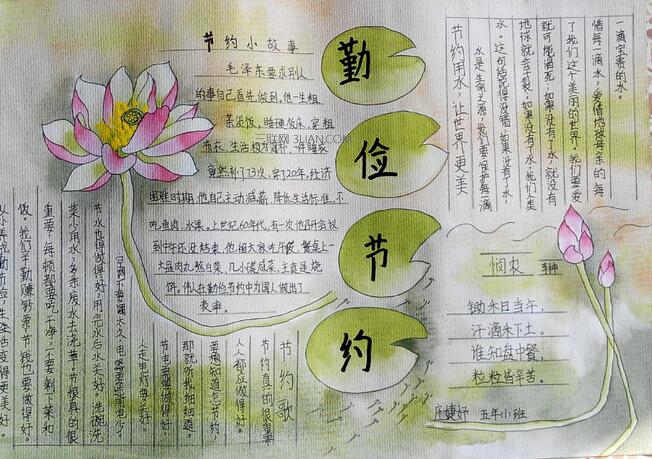 勤
俭
节
约
节约小故事
毛泽东要求别人
的事自己首先做到。他一生粗
茶淡饭，睡硬板床，穿粗
布衣，生活极为简朴，一件睡衣
竟然补了73次，穿了20年。经济
困难时期，他自己主动减薪、降低生活标准，不
吃鱼肉、水果。上世纪60年代，有一次他召开会议
到中午还没结束，他留大家吃午饭，餐桌上一
大盆肉丸熬白菜、几小碟咸菜，主食是烧
饼。伟人在勤俭节约中为国人做出了
表率。
三联网 3LIAN.COM
节约用水，让世界更美
水是生命之源，我们要保护每一滴
水。这句话说得没错，如果没有了水，
地球就会干裂，如果没有了水，我们人类
就可能渴死，如果没有了水，就没有
了我们这个美丽的世界。我们要爱
惜每一滴水，爱惜地球母亲的每
一滴宝贵的水。
悯农
李绅
锄禾日当午，
汗滴禾下土。
谁知盘中餐，
粒粒皆辛苦。
五年小班
节约歌
节约真的很重要，
人人都应做得好。
要想知道怎节约，
那就听我细细道。
节电要做得好，
人走电灯要关好。
节水也得做得好，用完水后水关好。洗碗洗
菜少用水，多余废水去浇草。节粮真的很
重要，每顿都要吃干净，不要剩下菜和
做。我们辛勤赚钞票，节钱也要做得好。